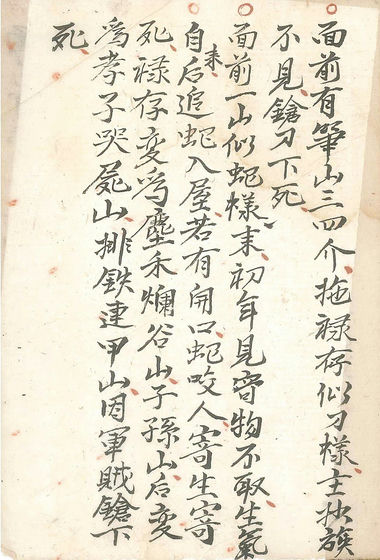 面前有筆山三四介拖禄存似刀樣主抄族
不見鎗刀下死
面前一山似蛇樣来初年見宵物不取生氣
自后来追蛇入屋若有開口蛇咬人寄生寄
死禄存変爲塵禾爛谷山子孫山后变
爲孝子哭屍山排鉄連甲山因軍賊鎗下
死